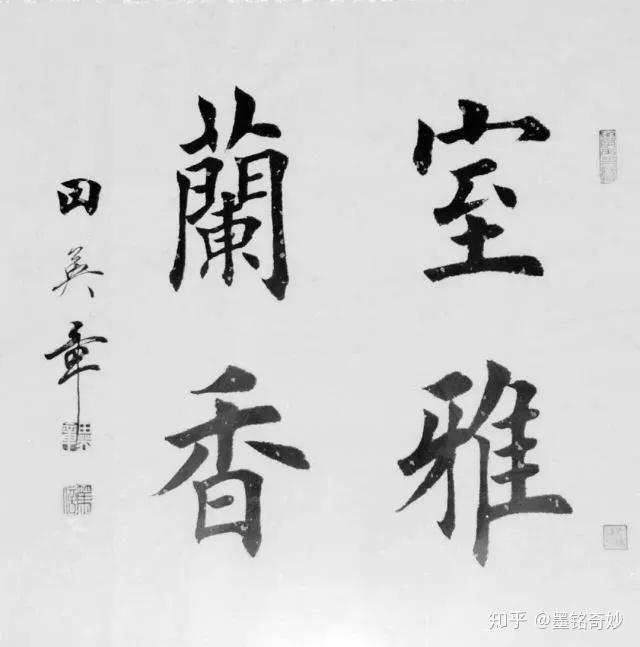 室雅
蘭香
田英章
知乎 @墨铭奇妙